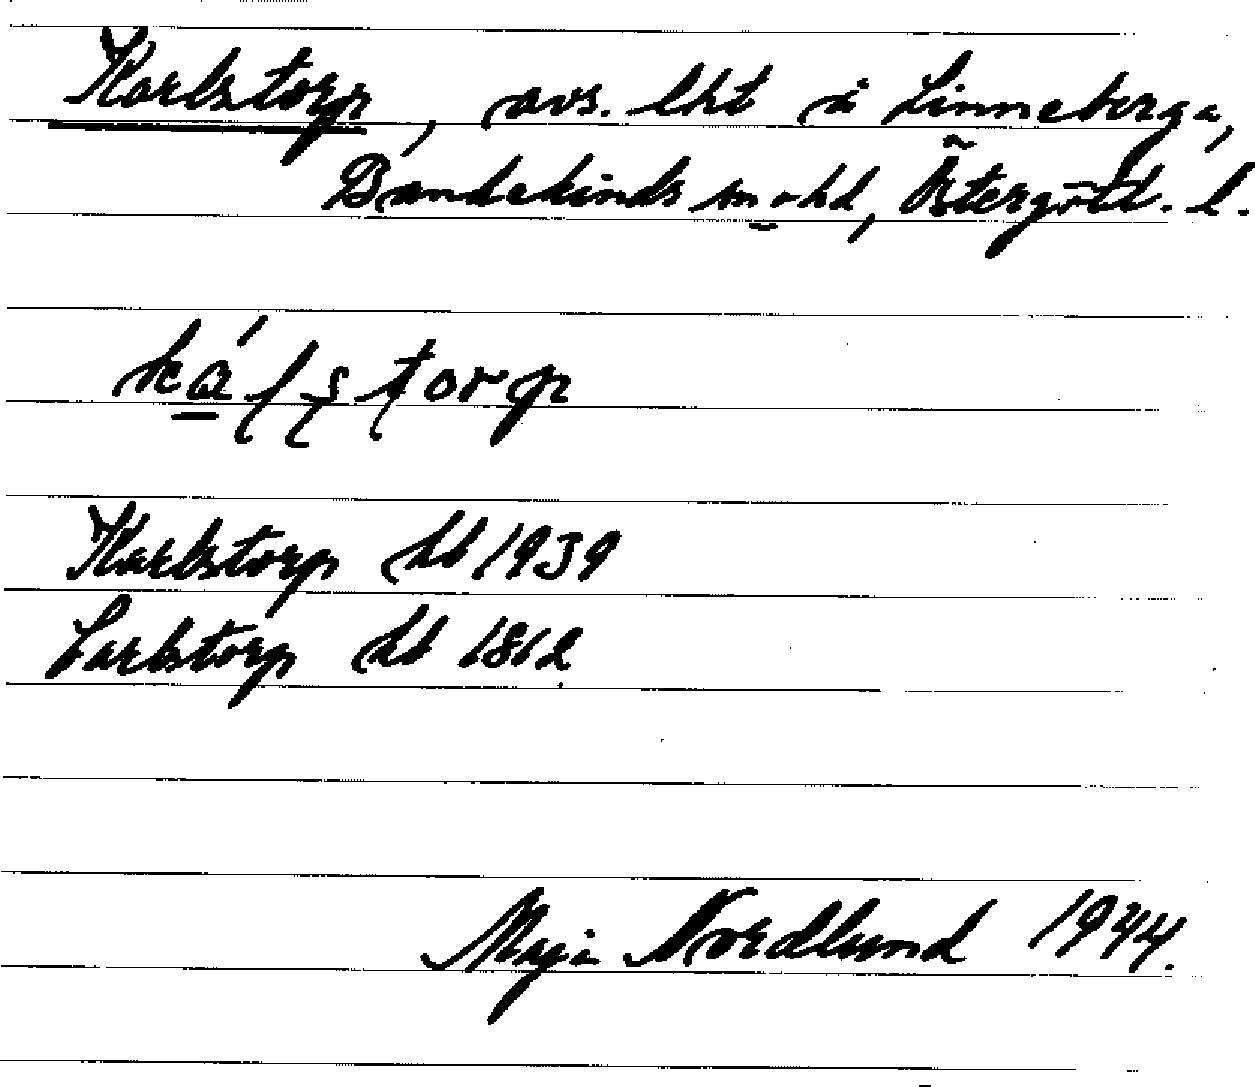 Karlstorp, avs. lht å Linneberga,
Bankekinds sn o hd, Östergötl. l.
ká̱ʃʂʈorp
Karlstorp hb 1939
Carlstorp hb 1812
Maja Nordlund 1944.